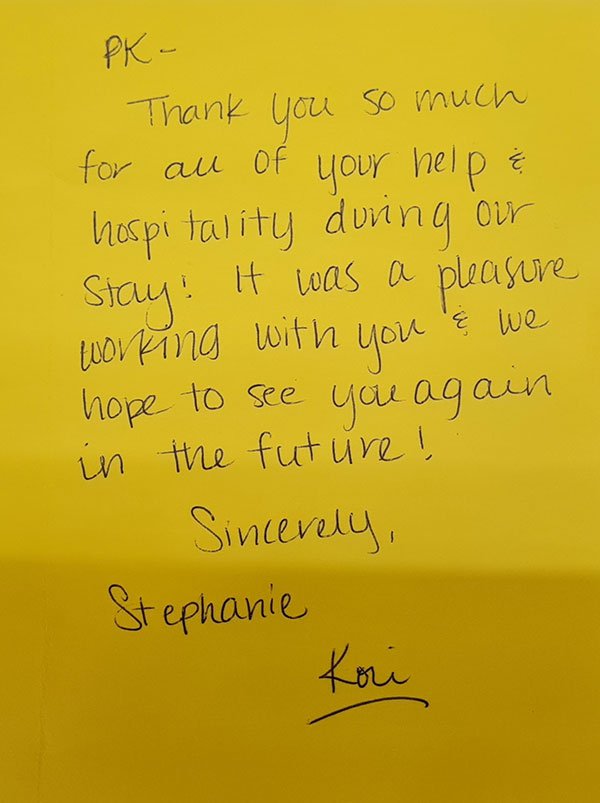 PK -
Thank you so much
for all of your help &
hospitality during our
stay! It was a pleasure
working with you & we
hope to see you again
in the future!
Sincerely,
Stephanie
Kori